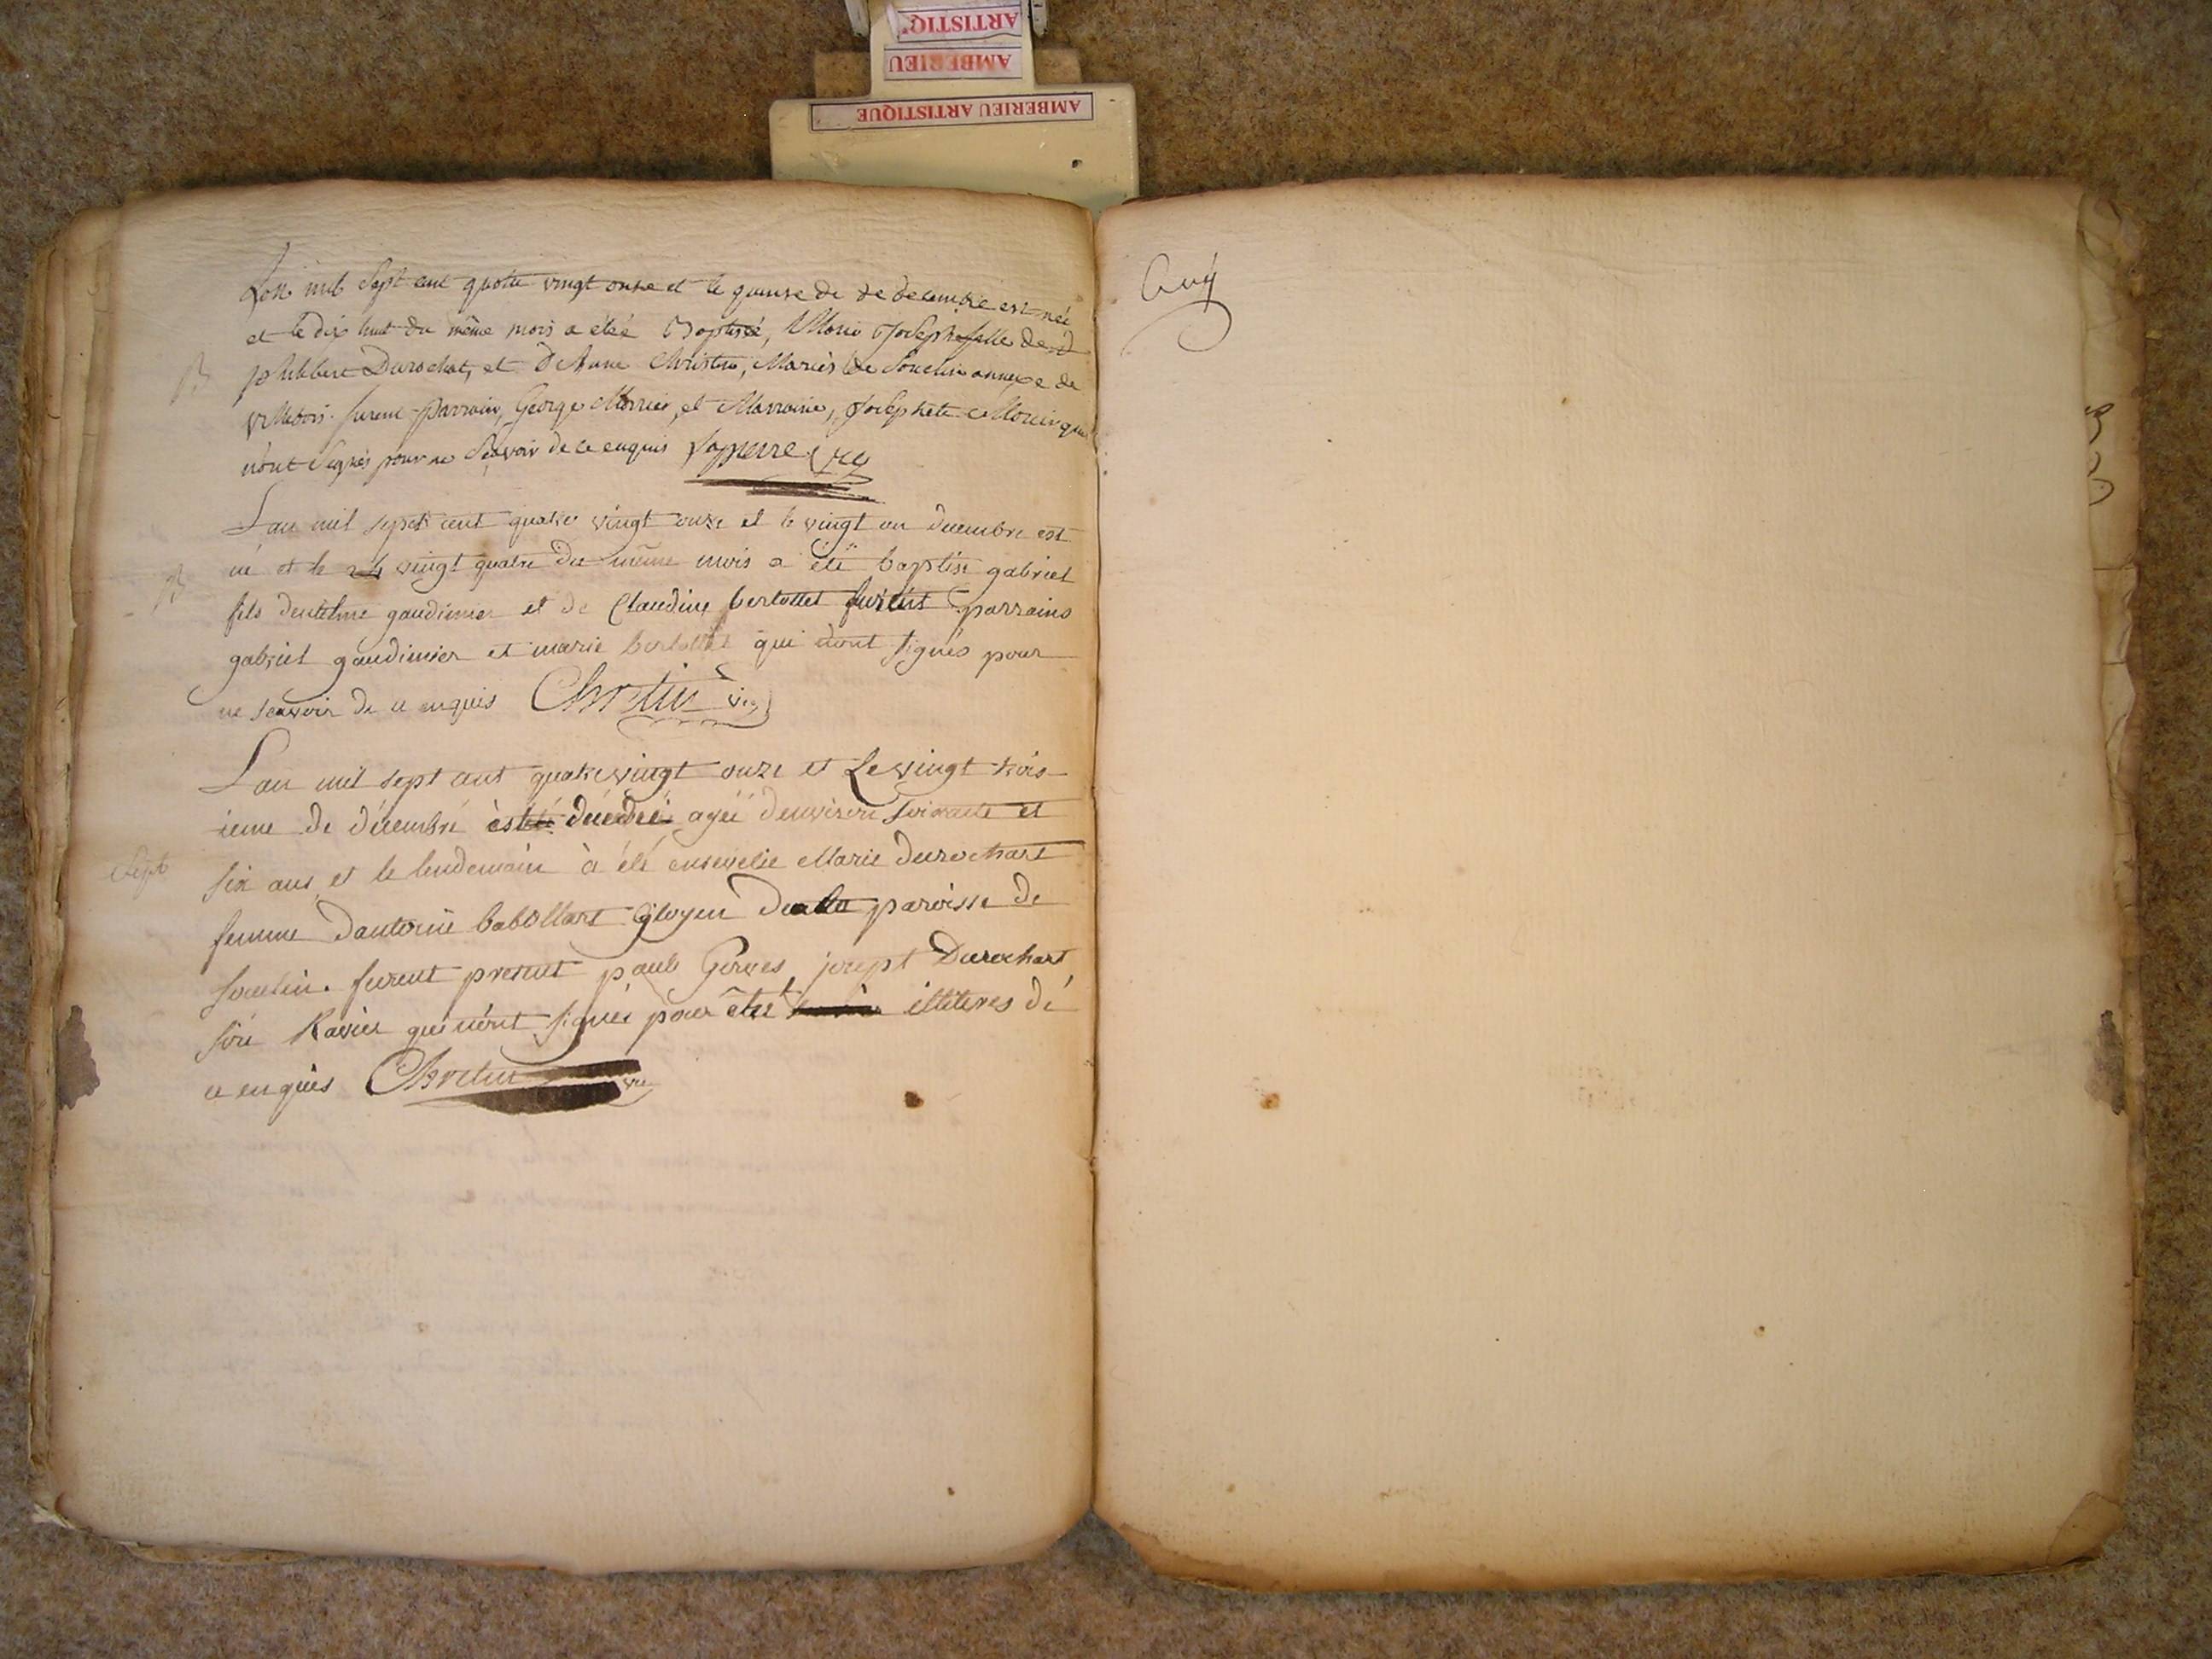 ARTISTIQ'
AMBERIEU
AMBERIEU ARTISTIQUE
Lan mil sept cent quatre vingt onze et le quinse de de decembre est née
et le dix huit du même mois a étée Baptisée, Marie Josephe fille de
philibert Durochat, et D'Anne Christin, Mariés de Souclin annexe de
villebois. furent Parrain, George Marrier, et Marraine, Josephete qui
B
n'ont signés pour ne sçavoir de ce enquis
Lan mil sept cent quatre vingt onze et le vingt un decembre est
né et le vingt quatre du même mois a été baptisé gabriel
B
fils dentelme gaudimier et de Claudine bertollet furent parrains
gabriel gaudimier et marie bertollet qui nont signés pour
ne sçavoir de ce enquis Chretin vic
Lan mil sept cent quatre vingt onze et Le vingt trois
ieme de décembre est décédée agée denviron soixante et
Sept
six ans et le lendemain à été ensevelie Marie durochart
femme dantoine babollart Citoyen de la paroisse de
souclin. furent present paul Gerves, josept Durochart
Ravier qui n'ont signés pour être illiteres de
ce enquis Chretin vic